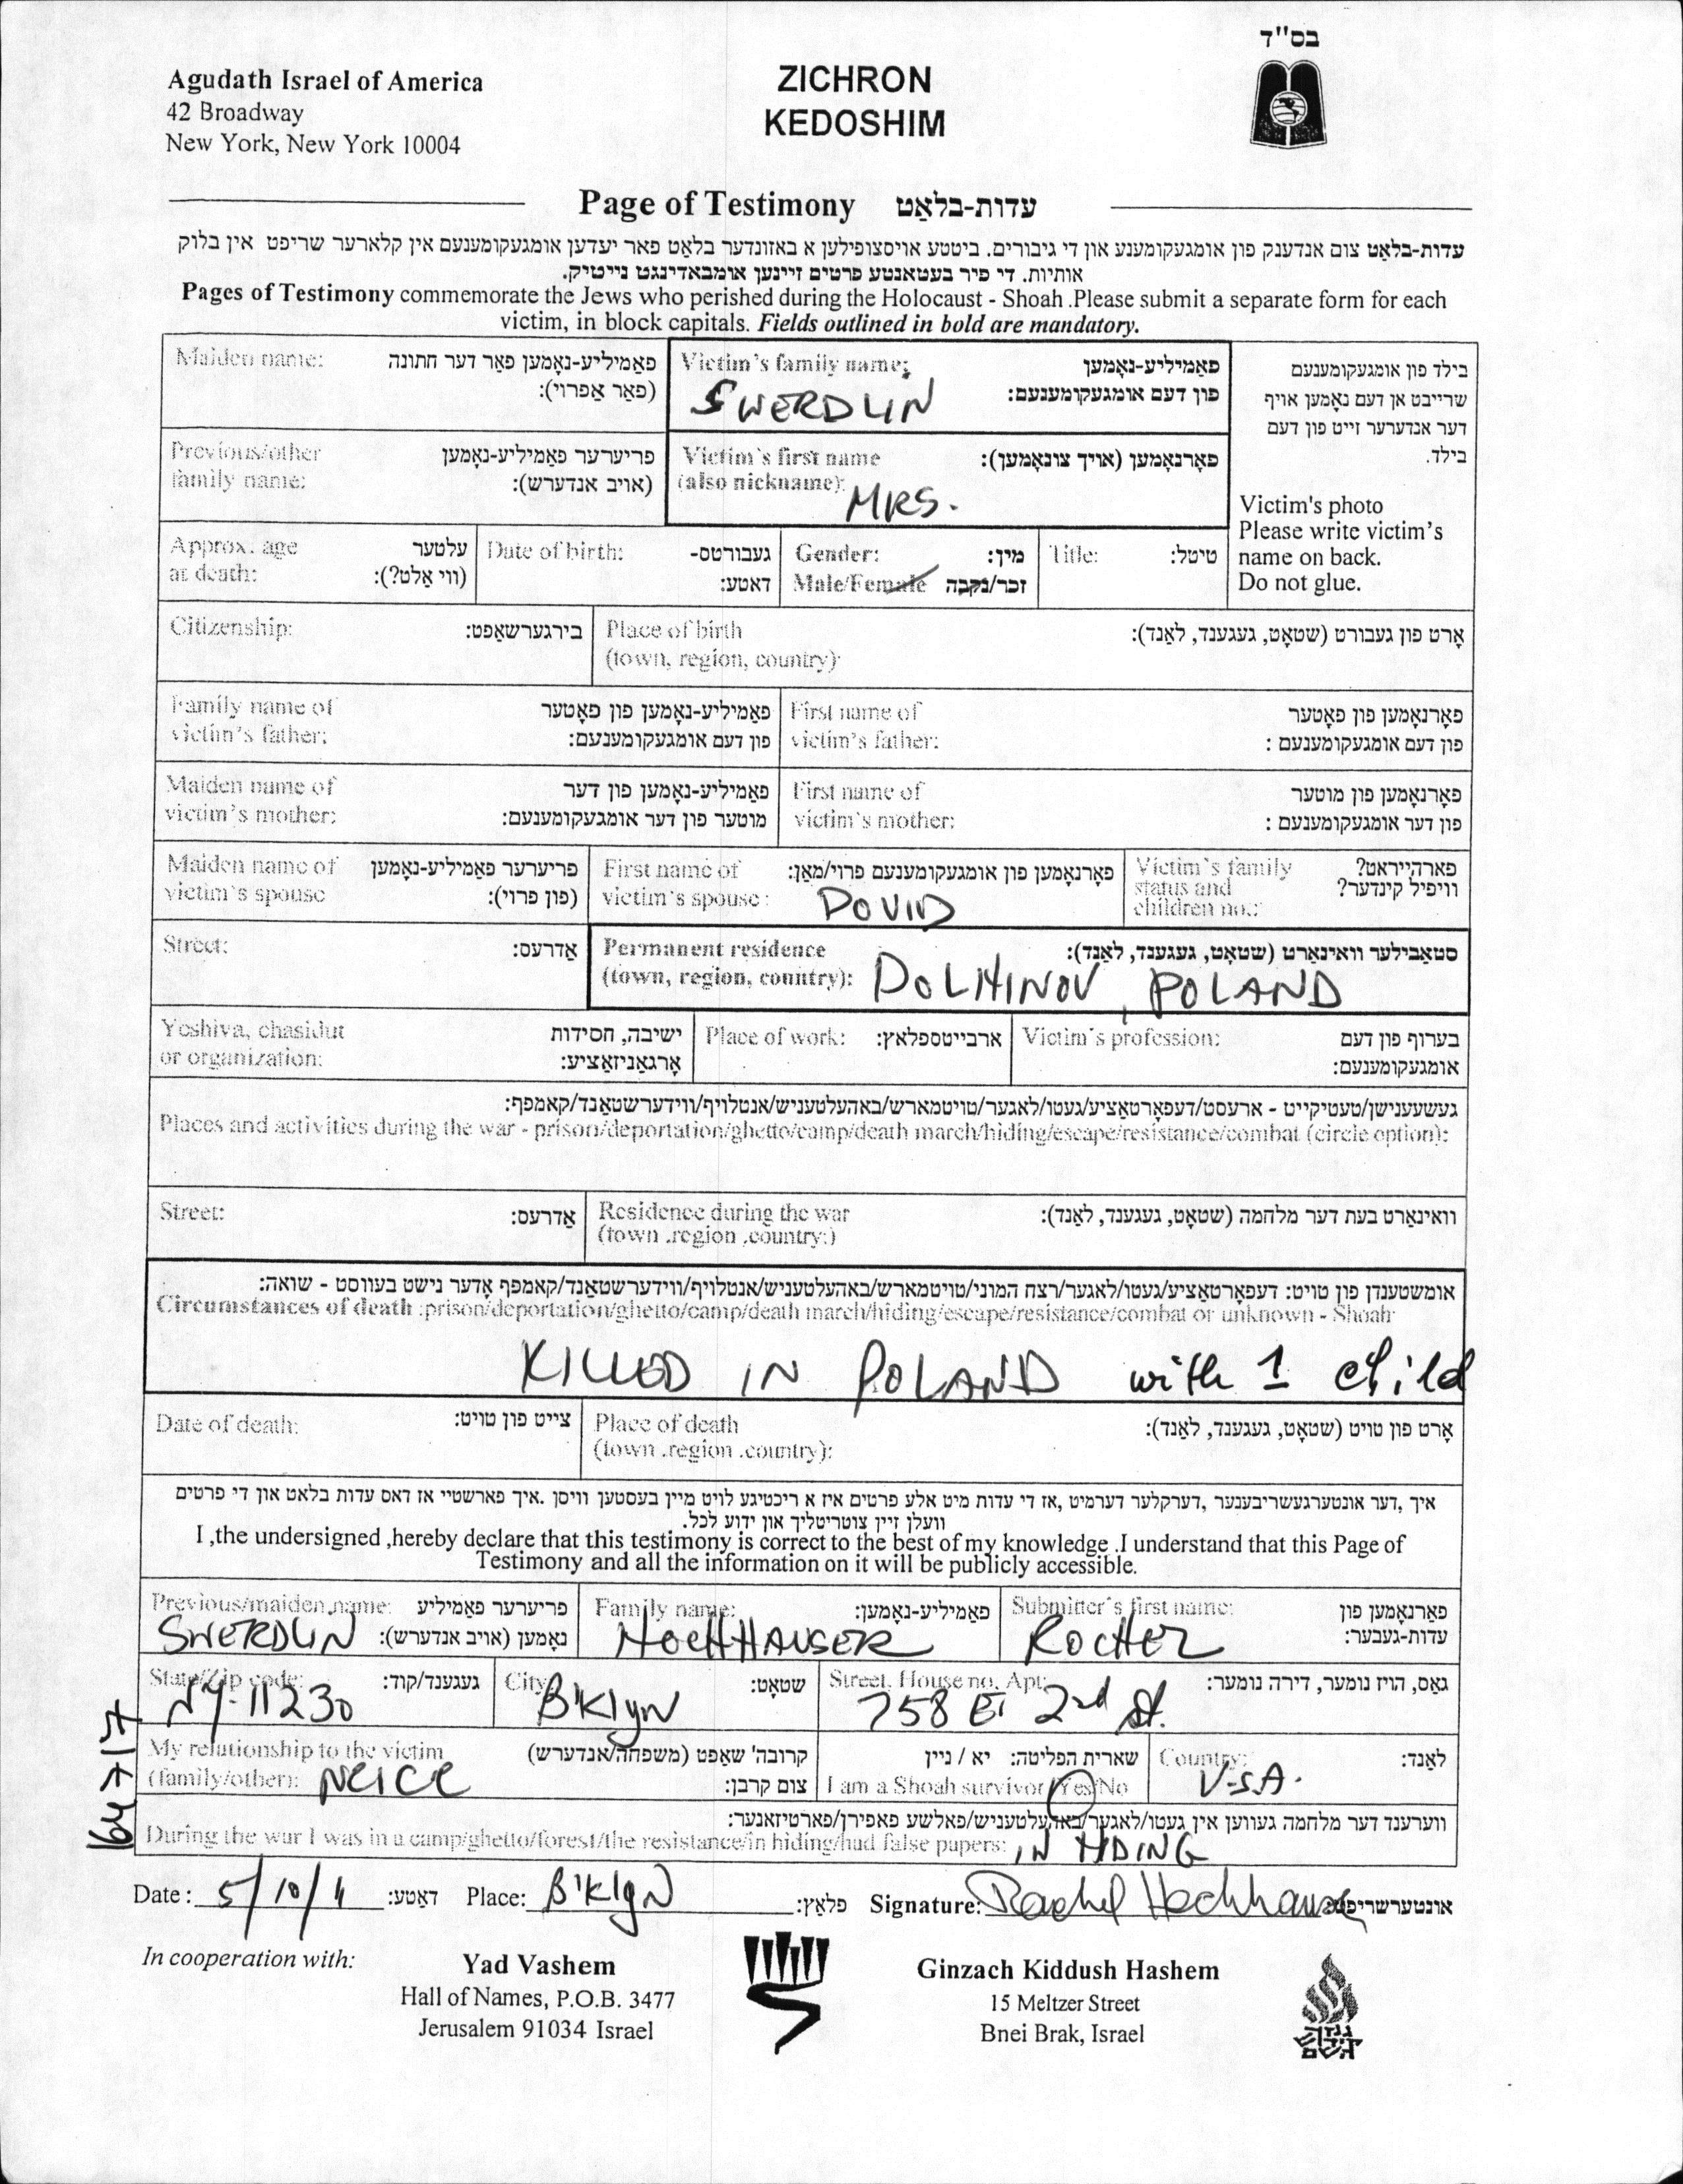 בס"ד
Agudath Israel of America
42 Broadway
New York, New York 10004
ZICHRON
KEDOSHIM
Page of Testimony עדות-בלאַט
עדות-בלאַט צום אנדענק פון אומגעקומענע און די גיבורים. ביטטע אויסצופילען א באזונדער בלאַט פאר יעדען אומגעקומענעם אין קלארער שריפט אין בלוק
אותיות. די פיר בעטאנטע פרטים זיינען אומבאדינגט נייטיק.
Pages of Testimony commemorate the Jews who perished during the Holocaust - Shoah .Please submit a separate form for each
victim, in block capitals. Fields outlined in bold are mandatory.
Maiden name: פאַמיליע-נאָמען פאַר דער חתונה
(פאַר אַפרוי):
Victim's family name: פאַמיליע-נאָמען
פון דעם אומגעקומענעם:
SWERDLIN
בילד פון אומגעקומענעם
שרייבט אן דעם נאָמען אויף
דער אנדערער זייט פון דעם
בילד.
Previous/other פריערער פאַמיליע-נאָמען
family name: (אויב אנדערש):
Victim's first name פאָרנאָמען (אויך צונאָמען):
(also nickname):
MRS.
Victim's photo
Please write victim's
name on back.
Do not glue.
Approx. age עלטער
at death: (ווי אַלט?):
Date of birth: געבורטס-
דאטע:
Gender: מין:
Male/Female זכר/נקבה
Title: טיטל:
Citizenship: בירגערשאַפט:
Place of birth אָרט פון געבורט (שטאָט, געגענד, לאַנד):
(town, region, country):
Family name of פאַמיליע-נאָמען פון פאָטער
victim's father: פון דעם אומגעקומענעם:
First name of פאָרנאָמען פון פאָטער
victim's father: פון דעם אומגעקומענעם :
Maiden name of פאַמיליע-נאָמען פון דער
victim's mother: מוטער פון דער אומגעקומענעם:
First name of פאָרנאָמען פון מוטער
victim's mother: פון דער אומגעקומענעם :
Maiden name of פריערער פאַמיליע-נאָמען
victim's spouse (פון פרוי):
First name of פאָרנאָמען פון אומגעקומענעם פרוי/מאַן:
victim's spouse: DOVID
Victim's family פארהייראט?
status and וויפיל קינדער?
children no.:
Street: אַדרעס:
Permanent residence סטאַבילער וואינאָרט (שטאָט, געגענד, לאַנד):
(town, region, country): DOLHINOV, POLAND
Yeshiva, chasidut ישיבה, חסידות
or organization: אָרגאַניזאַציע:
Place of work: ארבייטספלאץ:
Victim's profession: בערוף פון דעם
אומגעקומענעם:
געשעענישן/טעטיקייט - ארעסט/דעפאָרטאַציע/געטו/לאגער/טויטמארש/באהעלטעניש/אנטלויף/ווידערשטאַנד/קאמפף:
Places and activities during the war - prison/deportation/ghetto/camp/death march/hiding/escape/resistance/combat (circle option):
Street: אַדרעס:
Residence during the war וואינאָרט בעת דער מלחמה (שטאָט, געגענד, לאַנד):
(town .region .country:)
אומשטענדן פון טויט: דעפאָרטאַציע/געטו/לאגער/רצח המוני/טויטמארש/באהעלטעניש/אנטלויף/ווידערשטאַנד/קאמפף אָדער נישט בעווסט - שואה:
Circumstances of death :prison/deportation/ghetto/camp/death march/hiding/escape/resistance/combat or unknown - Shoah
KILLED IN POLAND with 1 child
Date of death: צייט פון טויט:
Place of death אָרט פון טויט (שטאָט, געגענד, לאַנד):
(town .region .country):
איך ,דער אונטערגעשריבענער ,דערקלער דערמיט ,אז די עדות מיט אלע פרטים איז א ריכטיגע לויט מיין בעסטען וויסן .איך פארשטיי אז דאס עדות בלאט און די פרטים
וועלן זיין צוטריטליך און ידוע לכל.
I ,the undersigned ,hereby declare that this testimony is correct to the best of my knowledge .I understand that this Page of
Testimony and all the information on it will be publicly accessible.
Previous/maiden name: פריערער פאַמיליע
SWERDLIN נאָמען (אויב אנדערש):
Family name: פאַמיליע-נאָמען:
HOCHHAUSER
Submitter's first name: פאָרנאָמען פון
עדות-געבער:
ROCHEL
State/Zip code: געגענד/קוד:
NY-11230
City: שטאָט:
B'Klyn
Street, House no. Apt: גאַס, הויז נומער, דירה נומער:
758 E. 2nd St.
My relationship to the victim קרובה' שאַפט (משפחה/אנדערש)
(family/other): NEICE צום קרבן:
שארית הפליטה: יא / ניין
I am a Shoah survivor Yes/No
Country: לאַנד:
U.S.A.
ווערענד דער מלחמה געווען אין געטו/לאגער/באהעלטעניש/פאלשע פאפירן/פארטיזאנער:
During the war I was in a camp/ghetto/forest/the resistance/in hiding/had false papers: IN HIDING
Date: 5/10/11 דאַטע: Place: B'Klyn פלאַץ: Signature: Rachel Hochhauser אונטערשריפט
In cooperation with:
Yad Vashem
Hall of Names, P.O.B. 3477
Jerusalem 91034 Israel
Ginzach Kiddush Hashem
15 Meltzer Street
Bnei Brak, Israel
גנזך
קידוש
השם